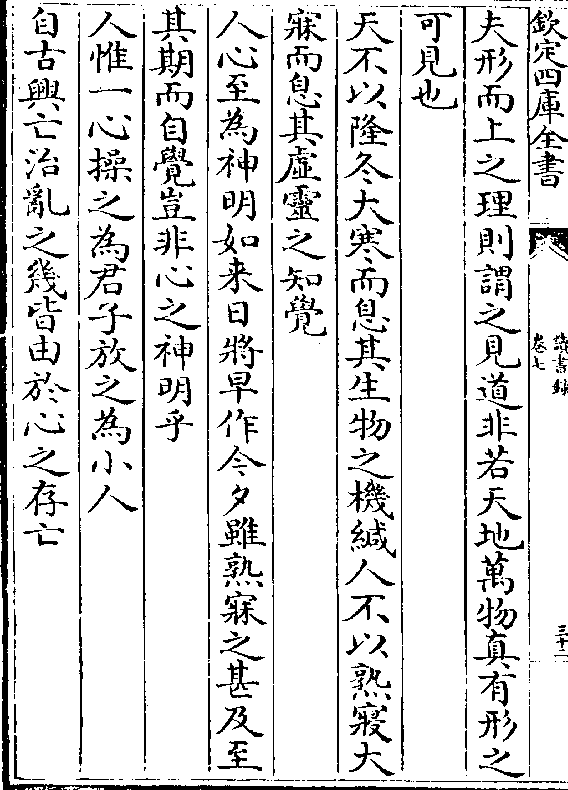 欽定四庫全書
讀書錄
卷七
三十二
夫形而上之理則謂之見道非若天地萬物真有形之
可見也
天不以隆冬大寒而息其生物之機緘人不以熟寢大
寐而息其虛靈之知覺
人心至為神明如来日將早作今夕雖熟寐之甚及至
其期而自覺豈非心之神明乎
人惟一心操之為君子放之為小人
自古興亡治亂之幾皆由於心之存亡